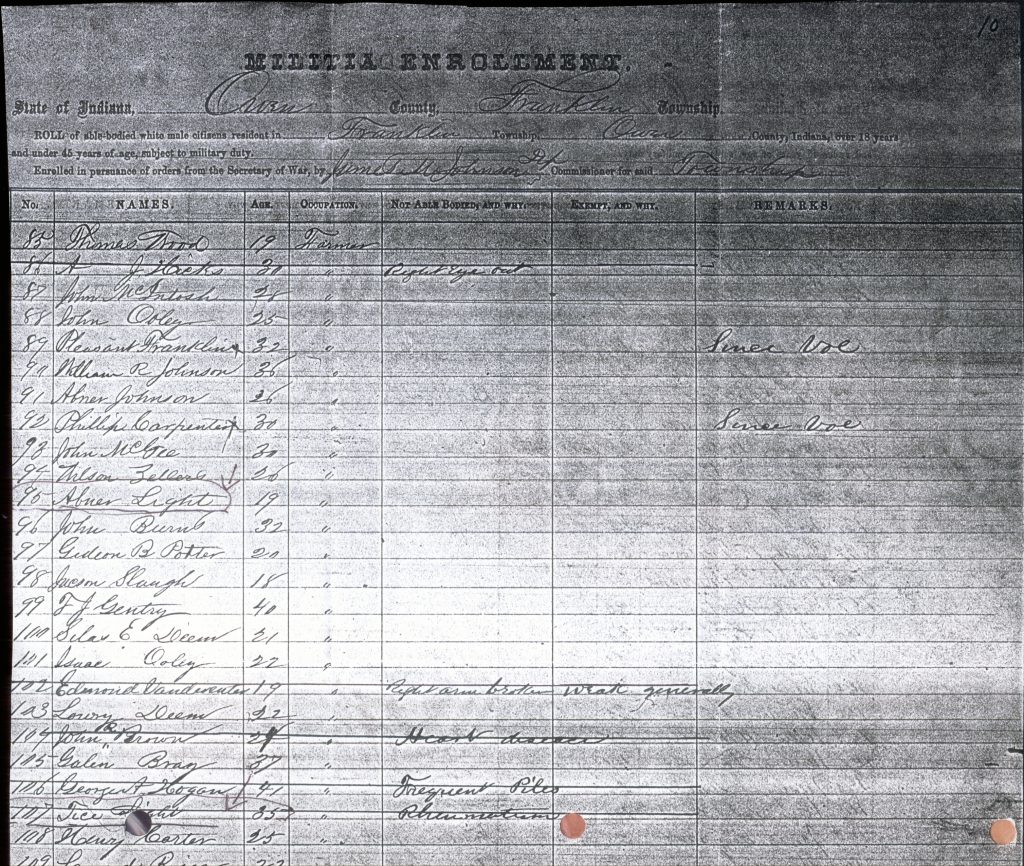 10
MILITIA ENROLLMENT.
State of Indiana, Owen County, Franklin Township.
ROLL of able-bodied white male citizens resident in Franklin Township, Owen County, Indiana, over 18 years
and under 45 years of age, subject to military duty.
Enrolled in pursuance of orders from the Secretary of War, by Johnson Commissioner for said Township
No. NAMES. AGE. OCCUPATION. NOT ABLE BODIED, AND WHY. EXEMPT, AND WHY. REMARKS.
85 Thomas 19 Farmer
86 A J Hicks 30 " Right Eye out
87 John McIntosh 28 "
88 John Coley 25 "
89 Pleasant Franklin 32 " Since Vol
90 William R Johnson 36 "
91 Abner Johnson 26 "
92 Phillip Carpenter 30 " Since Vol
93 John McGee 30 "
94 Wilson Zellers 26 "
95 Abner Light 19 "
96 John Burns 32 "
97 Gideon B Potter 20 "
98 Slaugh 18 "
99 F J Gentry 40 "
100 Silas E Deem 21 "
101 Isaac Coley 22 "
102 Edmond Vandeventer 19 " Right arm broken weak generally
103 Lowry Deem 22 "
104 John Brown 29 " Heart disease
105 Galin Brag 37 "
106 George A Hogan 41 " Frequent Piles
107 Tice Light 35 " Rheumatism
108 Henry Carter 25 "
109